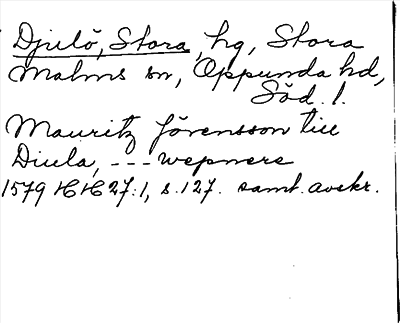 Djulö, Stora, hg, Stora
Malms sn, Oppunda hd,
Söd. l.
Mauritz Jörensson till
Diula, --- wepnere
1579 HH 27:1, s. 127. samt. avskr.